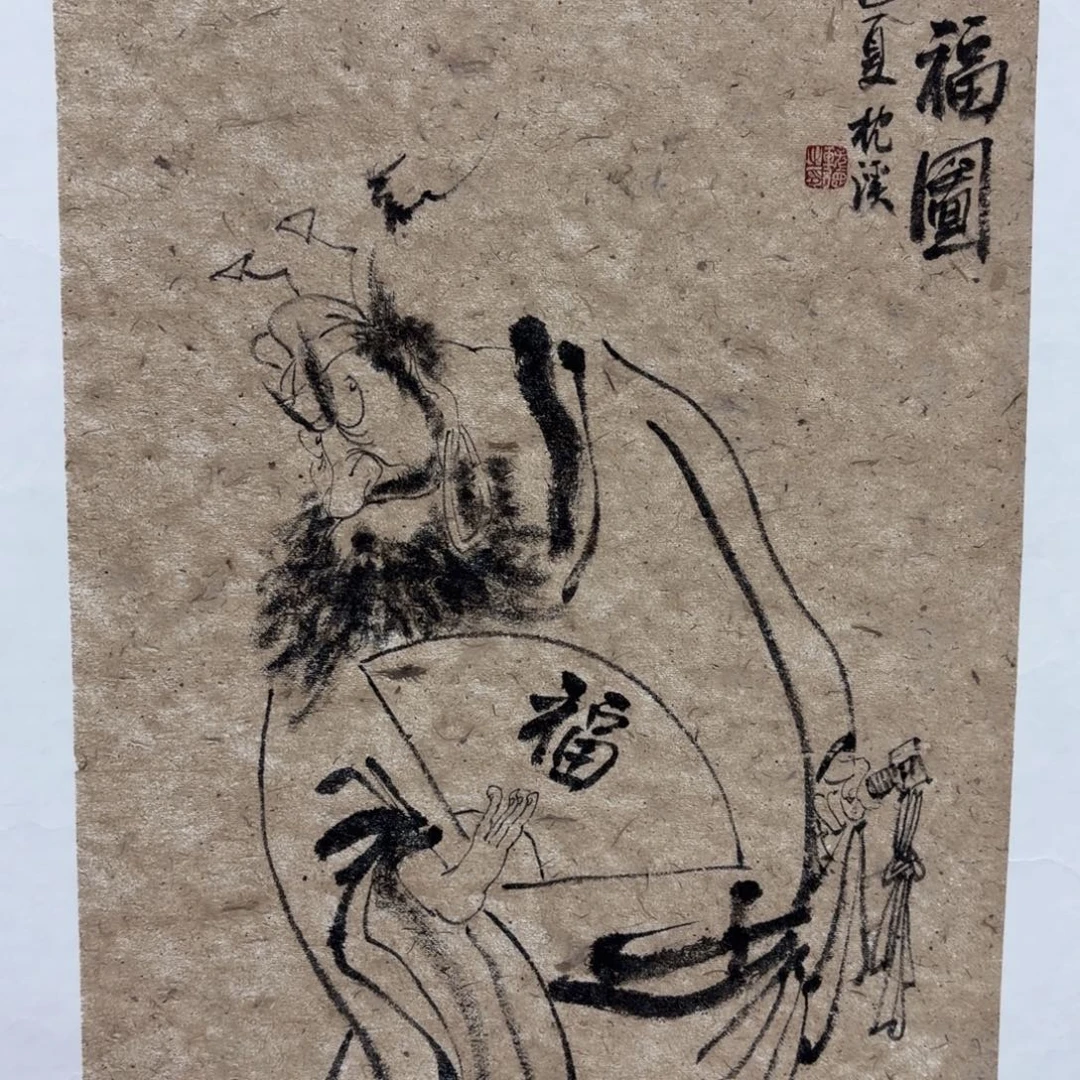 福圖
夏 枕溪
福